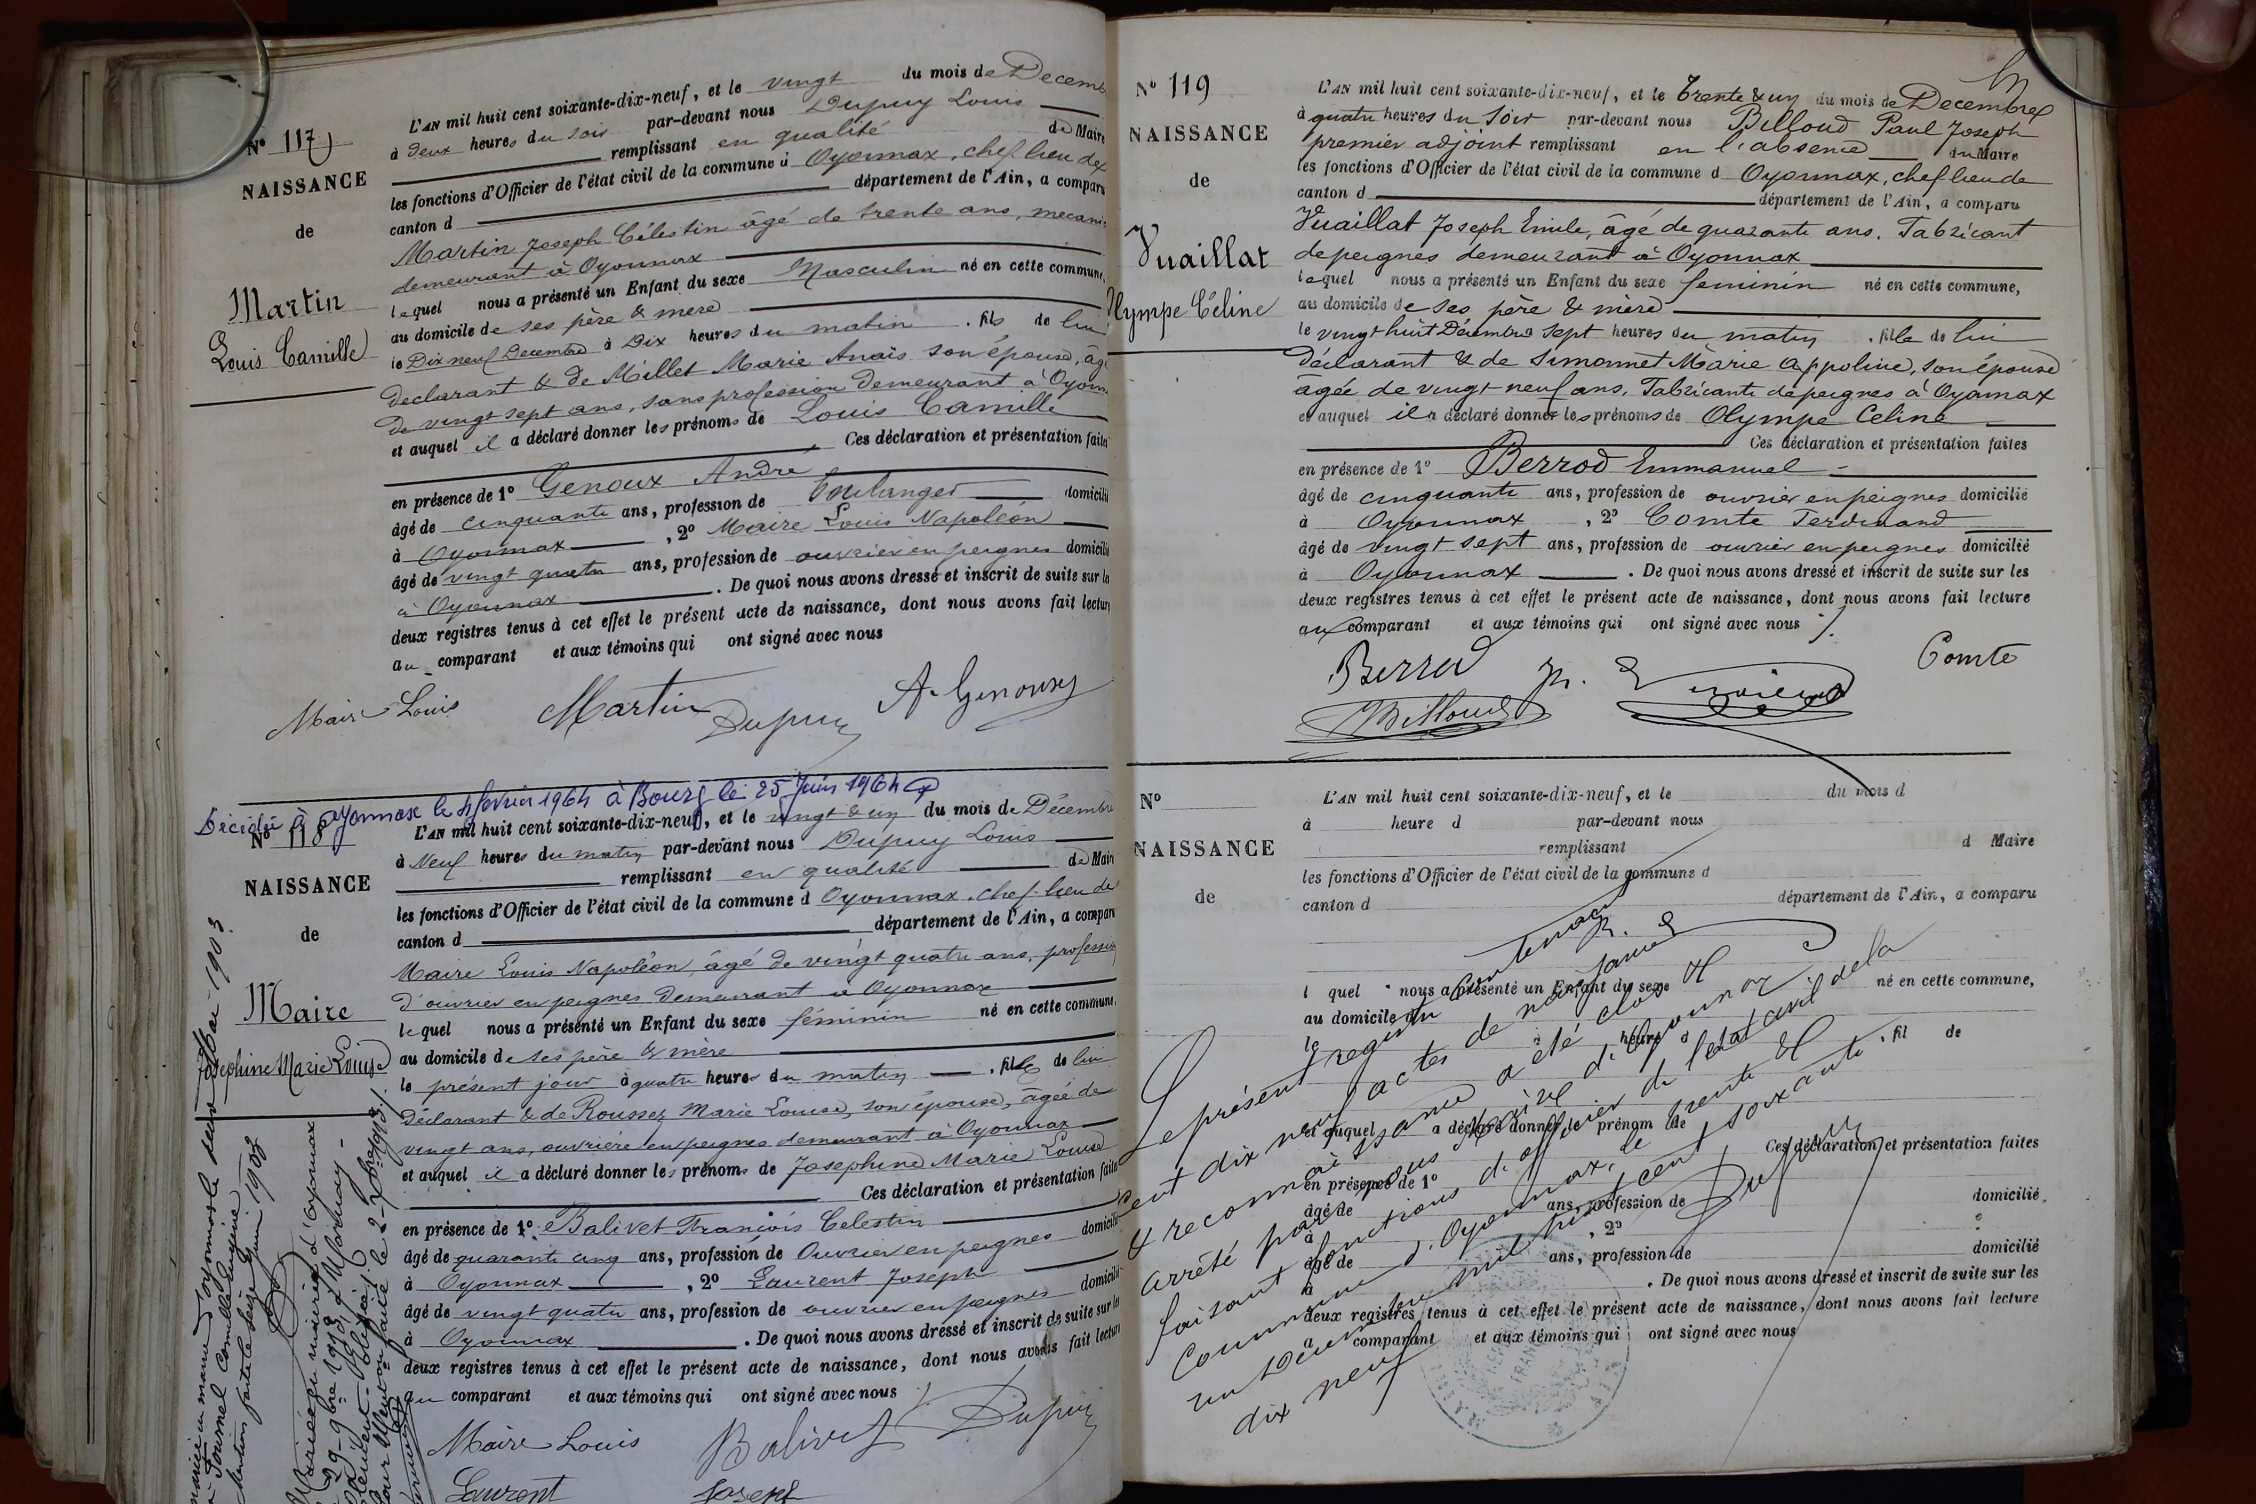 Nº 117
NAISSANCE
de
Martin
Louis Camille
L'AN mil huit cent soixante-dix-neuf, et le vingt du mois de Decemb
à deux heures du soir par-devant nous Dupuy Louis
remplissant en qualité de Maire
les fonctions d'Officier de l'état civil de la commune d Oyonnax, chef lieu de
canton d département de l'Ain, a comparu
Martin Joseph Célestin âgé de trente ans, mecani
demeurant à Oyonnax
lequel nous a présenté un Enfant du sexe Masculin né en cette commune,
au domicile de ses père & mère
le Dix neuf Decembre à Dix heures du matin . fils de lui
declarant & de Millet Marie Anaïs son épouse, âg
de vingt sept ans, sans profession demeurant à Oyonn
et auquel il a déclaré donner les prénoms de Louis Camille
Ces déclaration et présentation faites
en présence de 1º Genoux André
âgé de cinquante ans, profession de boulanger domicilié
à Oyonnax , 2º Maire Louis Napoléon
âgé de vingt quatre ans, profession de ouvrier en peignes domicilié
à Oyonnax . De quoi nous avons dressé et inscrit de suite sur les
deux registres tenus à cet effet le présent acte de naissance, dont nous avons fait lecture
au comparant et aux témoins qui ont signé avec nous
Maire Louis Martin Dupuy A. Genoux
Décidée à Oyonnax le 4 fevrier 1964 à Bourg le 25 Juin 1964
Nº 118
NAISSANCE
de
Maire
Josephine Marie Louise
L'AN mil huit cent soixante-dix-neuf, et le vingt & un du mois de Décembre
à Neuf heures du matin par-devant nous Dupuy Louis
remplissant en qualité de Maire
les fonctions d'Officier de l'état civil de la commune d Oyonnax, chef-lieu de
canton d département de l'Ain, a comparu
Maire Louis Napoléon, âgé de vingt quatre ans, profession
d'ouvrier en peignes demeurant à Oyonnax
lequel nous a présenté un Enfant du sexe féminin né en cette commune,
au domicile de ses père & mère
le présent jour à quatre heures du matin . fille de lui
Déclarant & de Roussez Marie Louise, son épouse, âgée de
vingt ans, ouvrière en peignes demeurant à Oyonnax
et auquel il a déclaré donner les prénoms de Josephine Marie Louise
Ces déclaration et présentation faites
en présence de 1º Balivet François Celestin
âgé de quarante cinq ans, profession de Ouvrier en peignes domicilié
à Oyonnax , 2º Laurent Joseph
âgé de vingt quatre ans, profession de ouvrier en peignes domicilié
à Oyonnax . De quoi nous avons dressé et inscrit de suite sur les
deux registres tenus à cet effet le présent acte de naissance, dont nous avons fait lecture
au comparant et aux témoins qui ont signé avec nous
Maire Louis Balivet Dupuy
Laurent Joseph
Mai 1903
Tournel Camille Eugène
Mention faite le seize Juin 1903
Mariée en mairie d'Oyonnax
Nº 119
NAISSANCE
de
Vuaillat
Olympe Céline
L'AN mil huit cent soixante-dix-neuf, et le Trente & un du mois de Decembre
à quatre heures du soir par-devant nous Billoud Paul Joseph
premier adjoint remplissant en l'absence du Maire
les fonctions d'Officier de l'état civil de la commune d Oyonnax, chef lieu de
canton d département de l'Ain, a comparu
Vuaillat Joseph Emile, âgé de quarante ans, Fabricant
de peignes demeurant à Oyonnax
lequel nous a présenté un Enfant du sexe feminin né en cette commune,
au domicile de ses père & mère
le vingt huit Décembre sept heures du matin . fille de lui
déclarant & de Simonnet Marie Appoline, son épouse
âgée de vingt neuf ans, Fabricante de peignes à Oyonnax
et auquel il a déclaré donner les prénoms de Olympe Celine
Ces déclaration et présentation faites
en présence de 1º Berrod Emmanuel
âgé de cinquante ans, profession de ouvrier en peignes domicilié
à Oyonnax , 2º Comte Ferdinand
âgé de vingt sept ans, profession de ouvrier en peignes domicilié
à Oyonnax . De quoi nous avons dressé et inscrit de suite sur les
deux registres tenus à cet effet le présent acte de naissance, dont nous avons fait lecture
au comparant et aux témoins qui ont signé avec nous
Berrod Comte
Billoud
Nº
NAISSANCE
de
L'AN mil huit cent soixante-dix-neuf, et le du mois d
à heure d par-devant nous
remplissant d Maire
les fonctions d'Officier de l'état civil de la commune d
canton d département de l'Ain, a comparu
l quel nous a présenté un Enfant du sexe né en cette commune,
au domicile d
le à heure d . fil de
et auquel a déclaré donner le prénom de
Ces déclaration et présentation faites
en présence de 1º
âgé de ans, profession de domicilié
à , 2º
âgé de ans, profession de domicilié
à . De quoi nous avons dressé et inscrit de suite sur les
deux registres tenus à cet effet le présent acte de naissance, dont nous avons fait lecture
a comparant et aux témoins qui ont signé avec nous
Le présent registre contenant
cent dix neuf actes de naissance
& reconnaissance a été clos &
arrêté par nous Maire d'Oyonnax
faisant fonctions d'officier de l'état civil de la
Commune d'Oyonnax, le trente &
un Décembre mil huit cent soixante
dix neuf
Dupuy